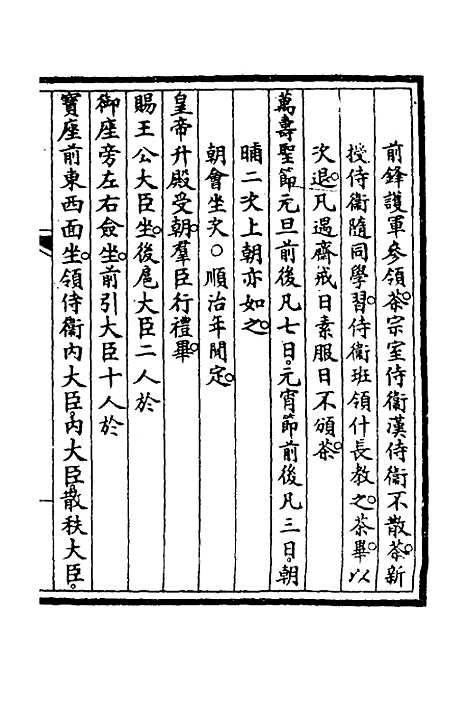 前鋒護軍參領茶。宗室侍衛漢侍衛不散茶。新
授侍衛隨同學習。侍衛班領什長教之。茶畢以
次退。凡遇齋戒日素服日不頒茶。
萬壽聖節元旦前後凡七日。元宵節前後凡三日。朝
晡二次上朝亦如之。
朝會坐次○順治年間定。
皇帝升殿受朝。羣臣行禮畢。
賜王公大臣坐。後扈大臣二人於
御座旁左右僉坐。前引大臣十人於
寶座前東西面坐。領侍衛內大臣。內大臣。散秩大臣。